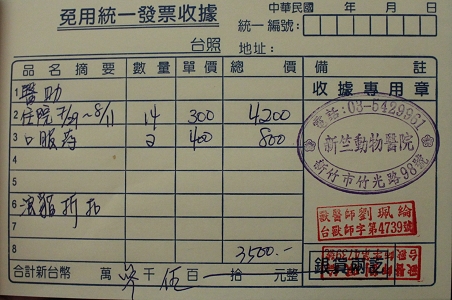 免用統一發票收據
中華民國 年 月 日
統一編號:
台照 地址:
品名摘要 數量 單價 總價 備註
1 醫助
2 住院 7/29~8/11 14 300 4200
3 口服藥 2 400 800
4
5
6 浪貓折扣
7
8 3500.-
合計新台幣 萬 參千伍百 拾 元整
收據專用章
電話:03-5429961
新竺動物醫院
新竹市竹光路98號
獸醫師劉珮綸
台獸師字第4739號
銀貨兩訖